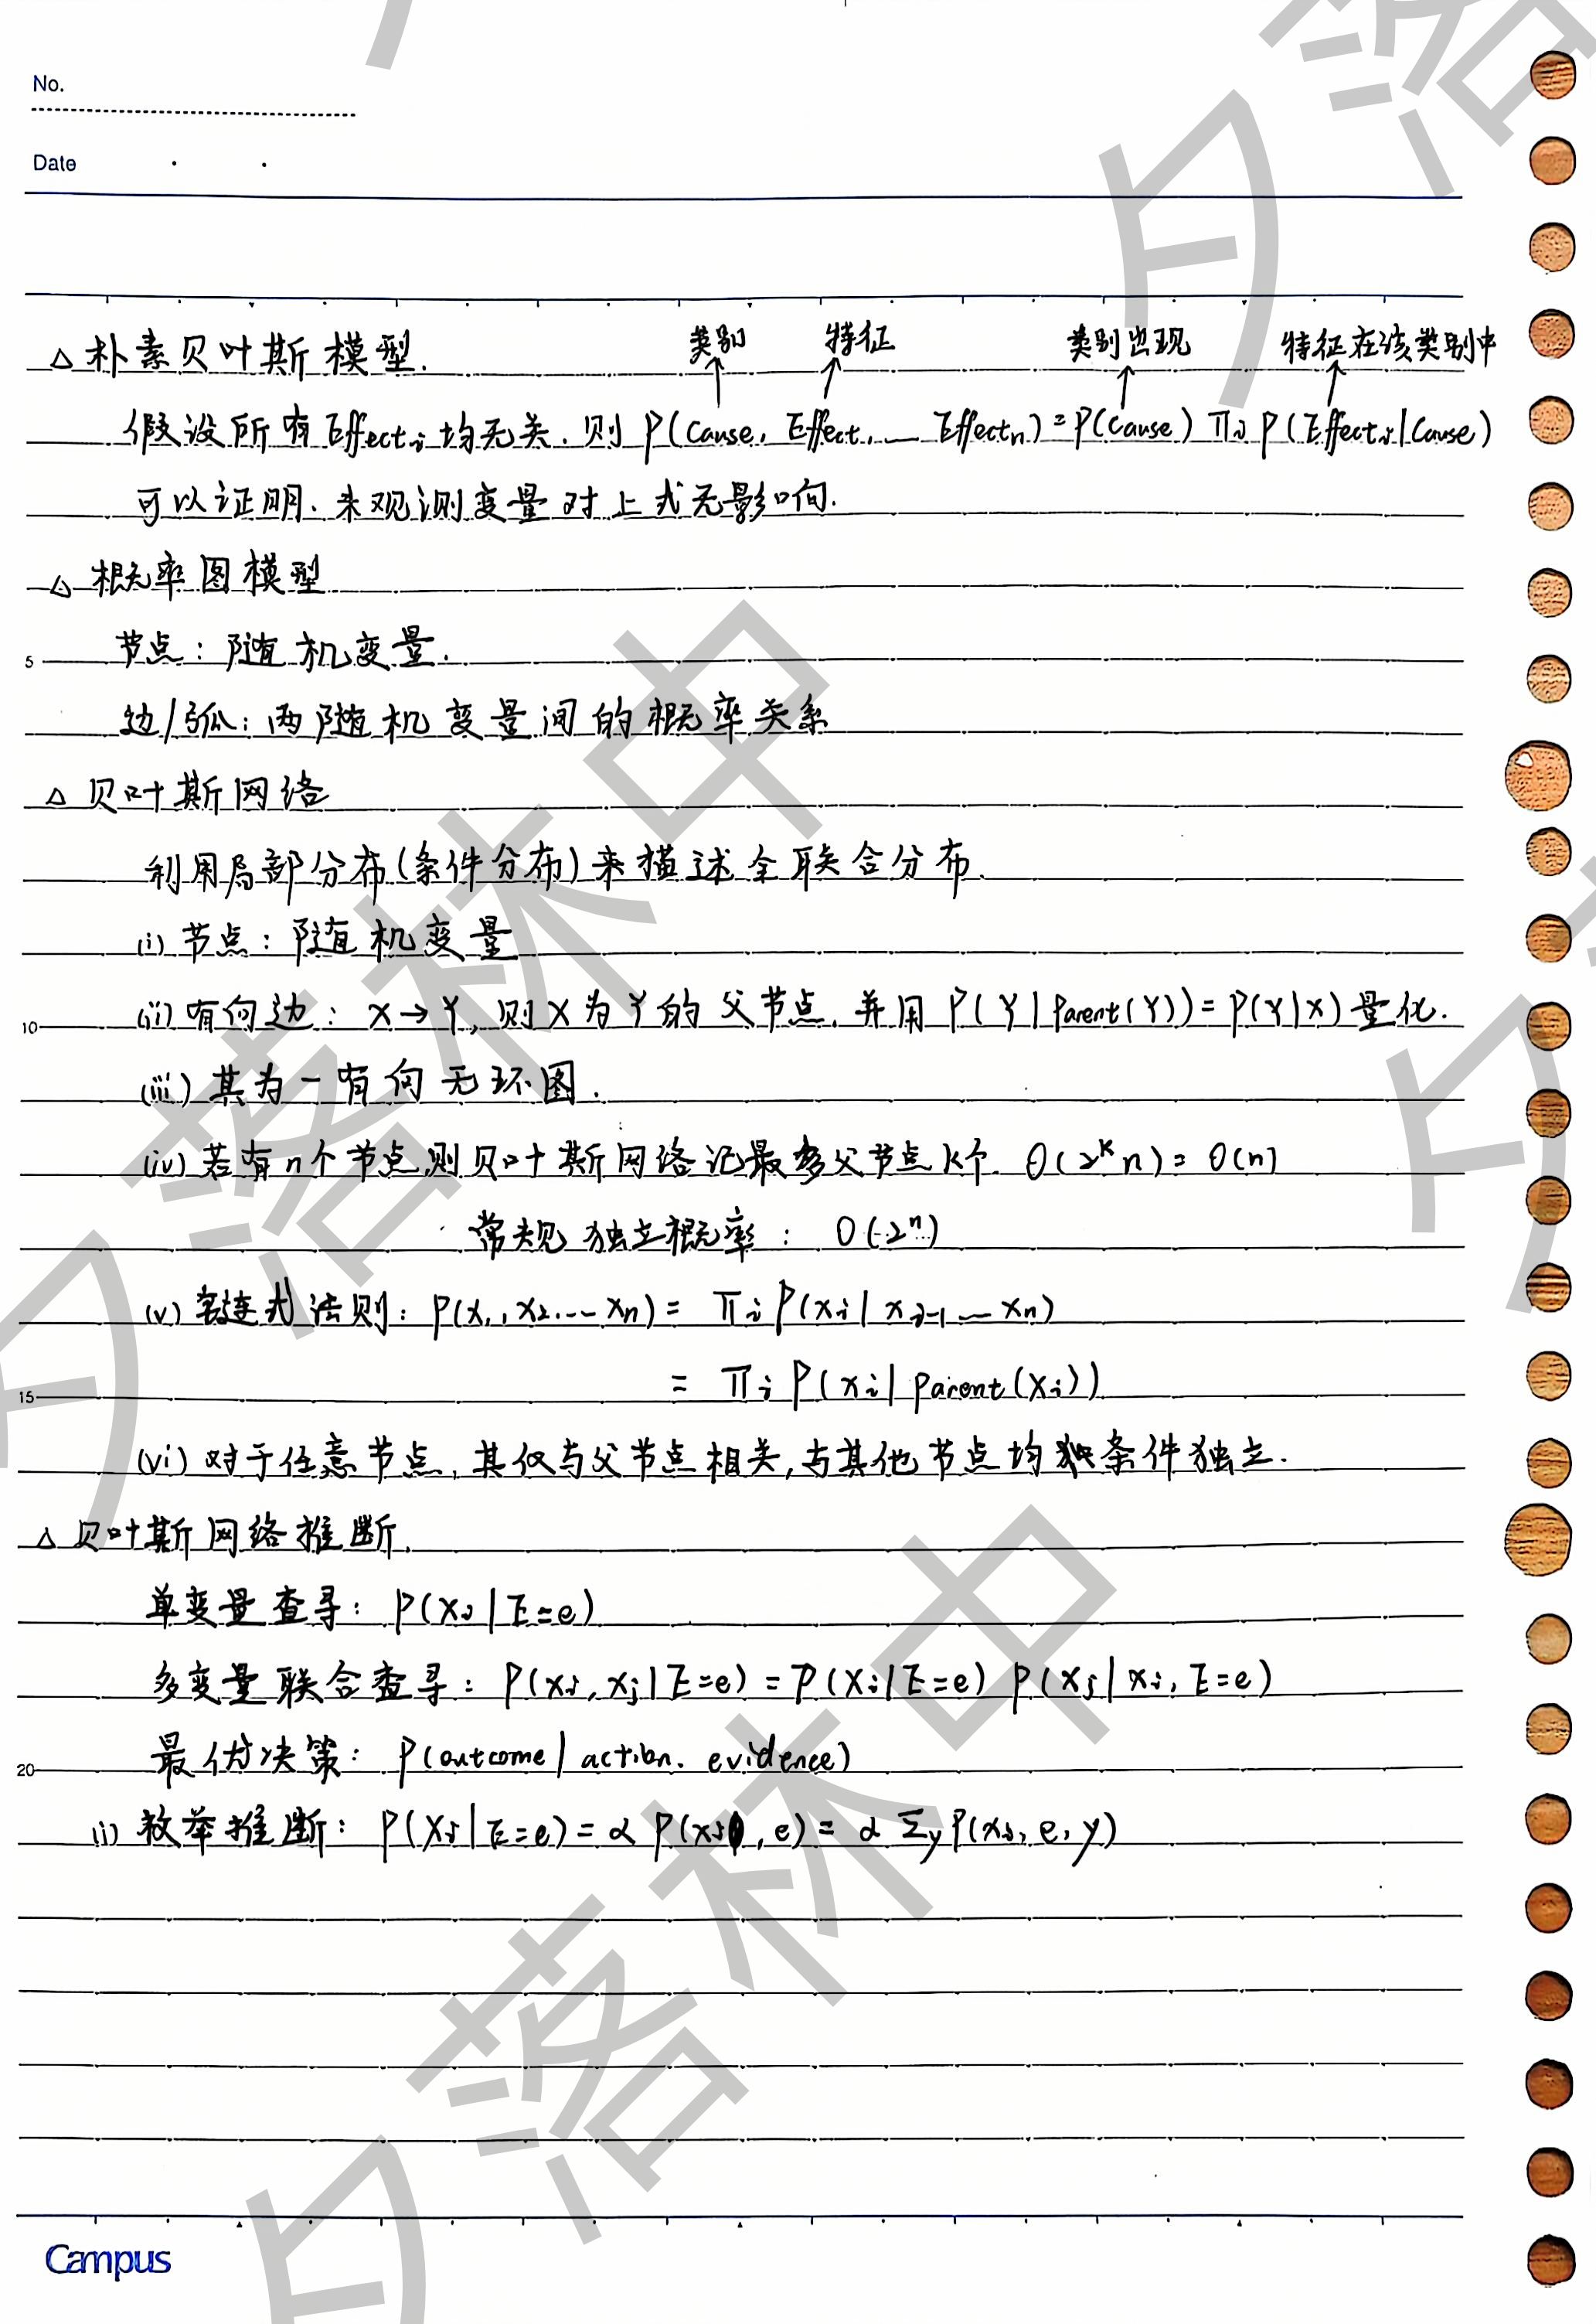 No.
Date
类别 特征 类别出现 特征在该类别中
△ 朴素贝叶斯模型.
假设所有Effecti均无关. 则 P(Cause, Effect, … Effectn) = P(Cause) Πi P(Effecti|Cause)
可以证明. 未观测变量对上式无影响.
△ 概率图模型
5 节点: 随机变量.
边/弧: 两随机变量间的概率关系
△ 贝叶斯网络
利用局部分布(条件分布)来描述全联合分布.
(i) 节点: 随机变量
10 (ii) 有向边: X→Y, 则X为Y的父节点. 并用 P(Y|Parent(Y)) = P(Y|X) 量化.
(iii) 其为一有向无环图.
(iv) 若有n个节点则贝叶斯网络记最多父节点k个. O(2^k n) = O(n)
常规独立概率: O(2^n)
(v) 链式法则: P(x1, x2, … xn) = Πi P(xi | xi-1 … xn)
15 = Πi P(xi | parent(xi))
(vi) 对于任意节点, 其仅与父节点相关, 与其他节点均条件独立.
△ 贝叶斯网络推断.
单变量查寻: P(xi | E=e)
多变量联合查寻: P(xi, xj | E=e) = P(xi | E=e) P(xj | xi, E=e)
20 最优决策: P(outcome | action. evidence)
(i) 枚举推断: P(Xi | E=e) = α P(xi, e) = α Σy P(xi, e, y)
Campus
夕落林中
夕落林中
夕落
夕